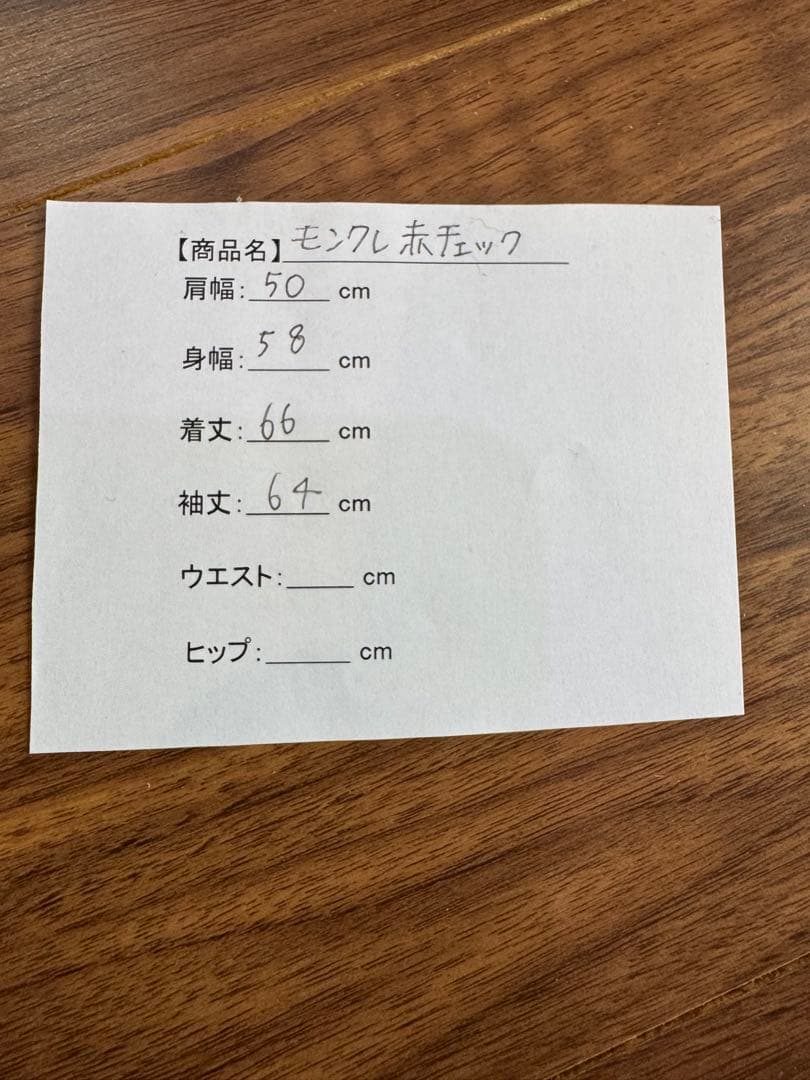 【商品名】モンクレ 赤チェック
肩幅：50 cm
身幅：58 cm
着丈：66 cm
袖丈：64 cm
ウエスト：____ cm
ヒップ：____ cm